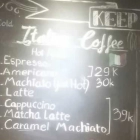 KEEP
Italian Coffee
Hot
.Espresso
.Americano 29K
.Machiato (Hot) 30K
. Latte
. Cappuccino
. Matcha Latte 39K
. Caramel Machiato